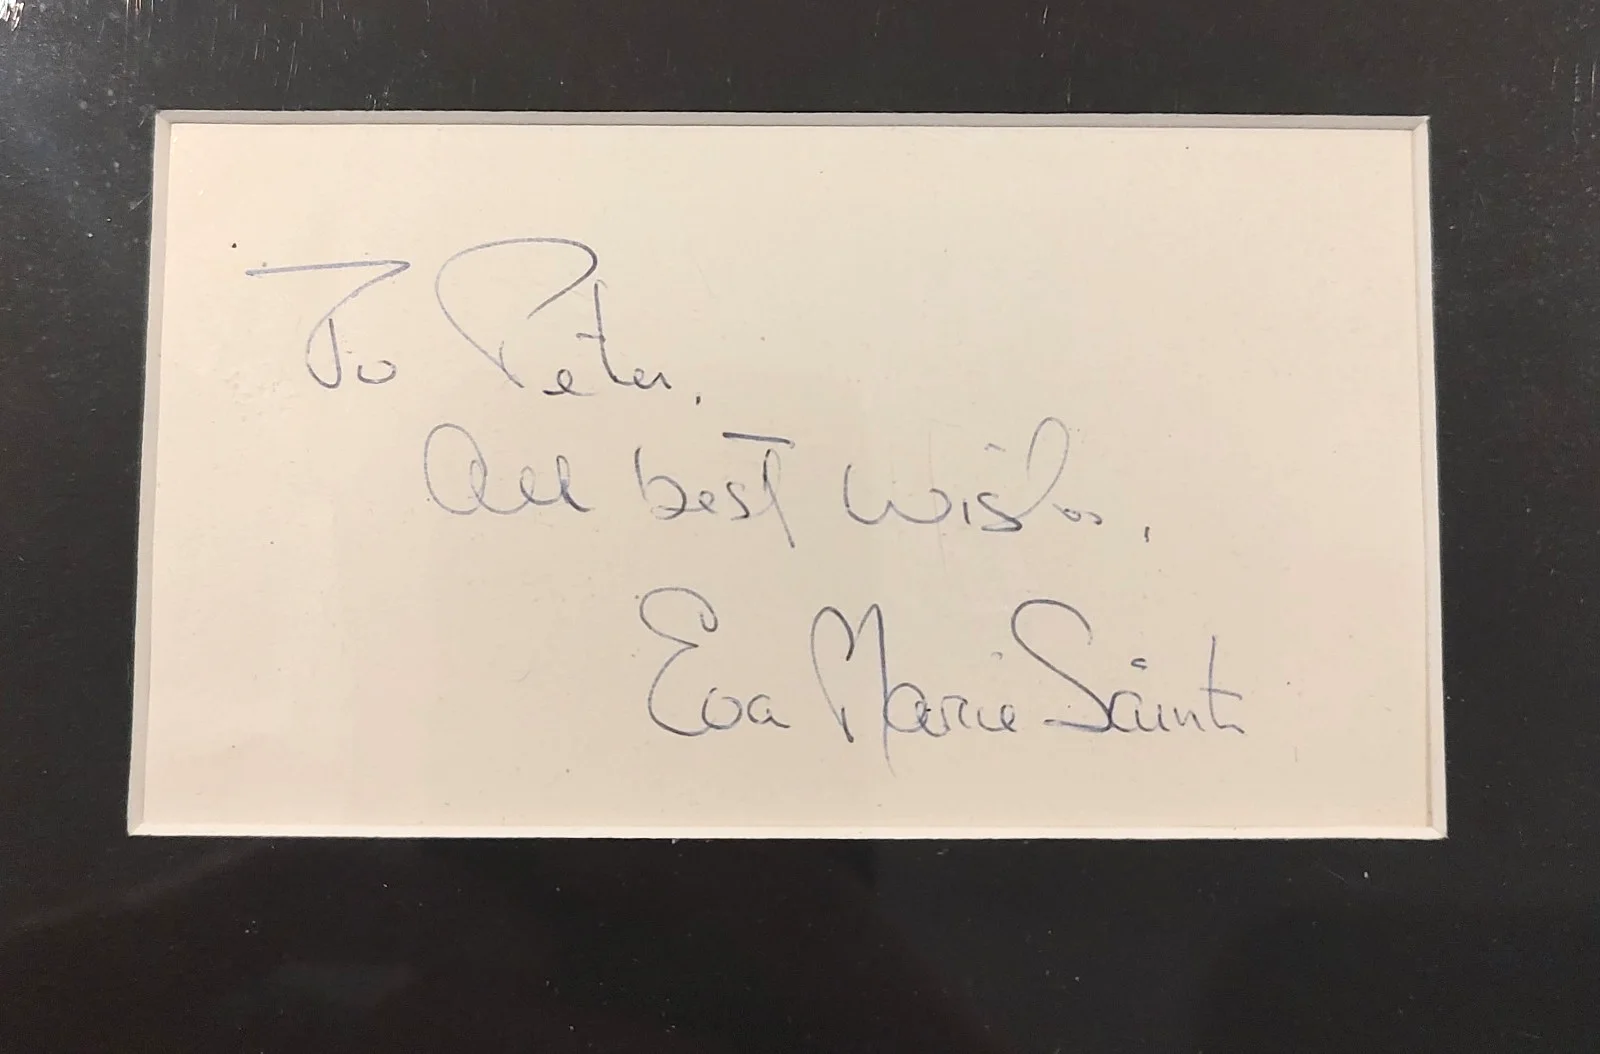 To Peter,
All best wishes,
Eva Marie Saint